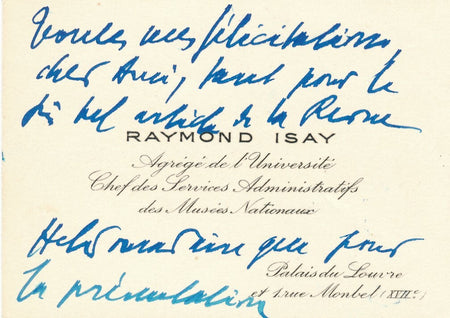 Toutes mes félicitations,
cher Ami, tant pour le
si bel article de la Revue
RAYMOND ISAY
Agrégé de l'Université
Chef des Services Administratifs
des Musées Nationaux
Hebdomadaire que pour
Palais du Louvre
la présentation
et 1 rue Monbel (XVIIe)